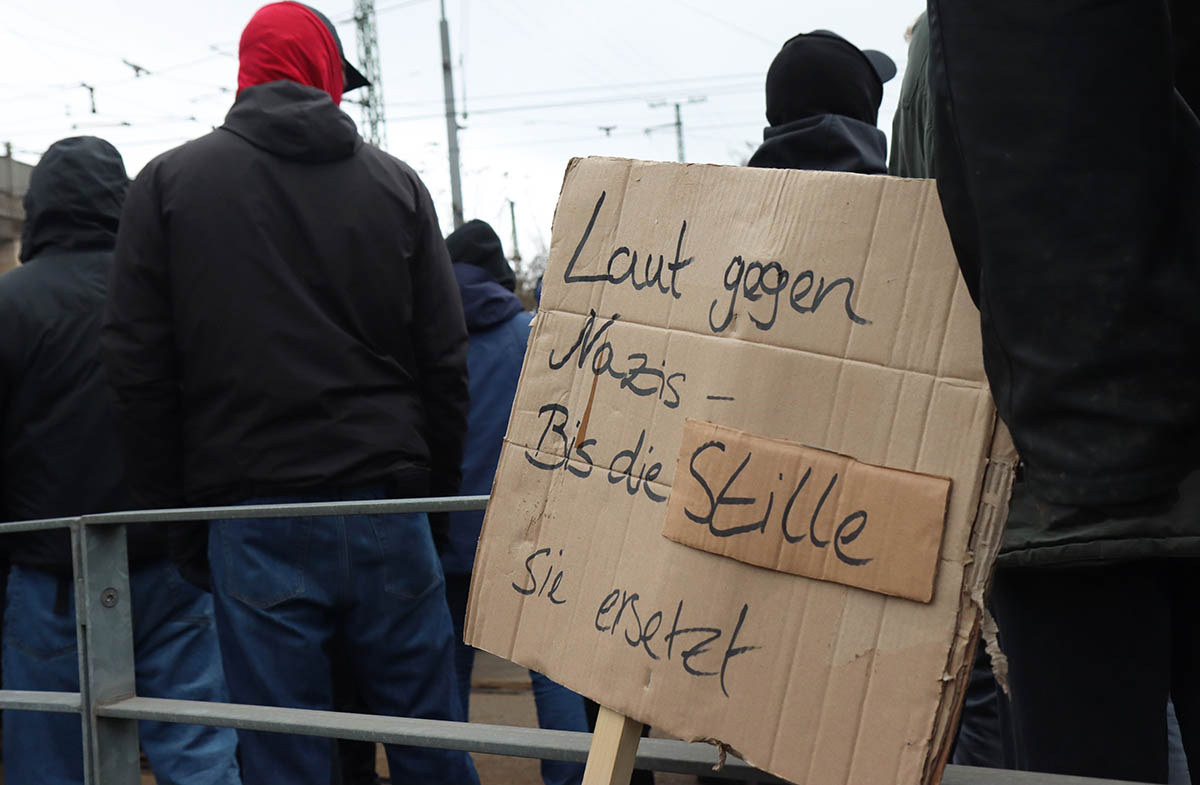 Laut gegen
Nazis –
Bis die Stille
Sie ersetzt